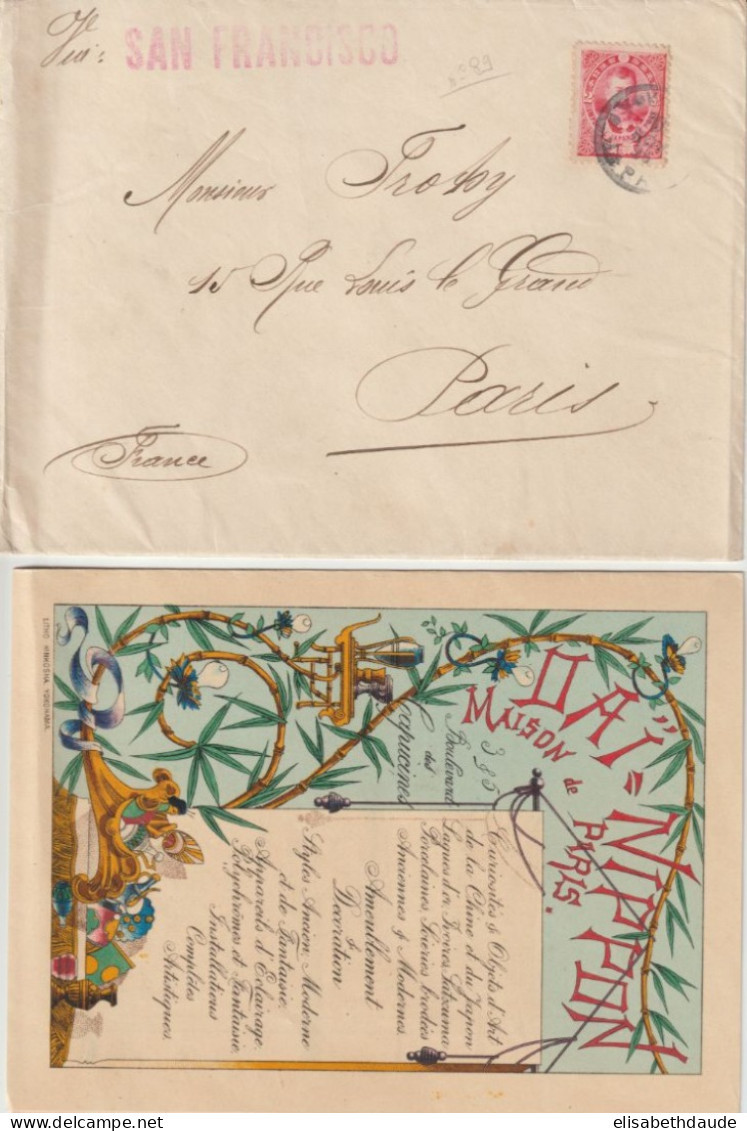 Via: SAN FRANCISCO
Monsieur Trohy
15 Rue Louis le Grand
Paris
France
DAÏ-NIPPON
MAISON de PARIS.
3 & 5
Boulevard
des
Capucines
Curiosités & Objets d'Art
de la Chine et du Japon
Laques d'or, Ivoires, Satzuma
Porcelaines, Soieries brodées
Anciennes & Modernes.
Ameublement
&
Décoration
Styles Ancien, Moderne
et de Fantaisie.
Appareils d'Eclairage.
Polychrômes et Fantaisie
Installations
Complètes
Artistiques.
elisabethdaude